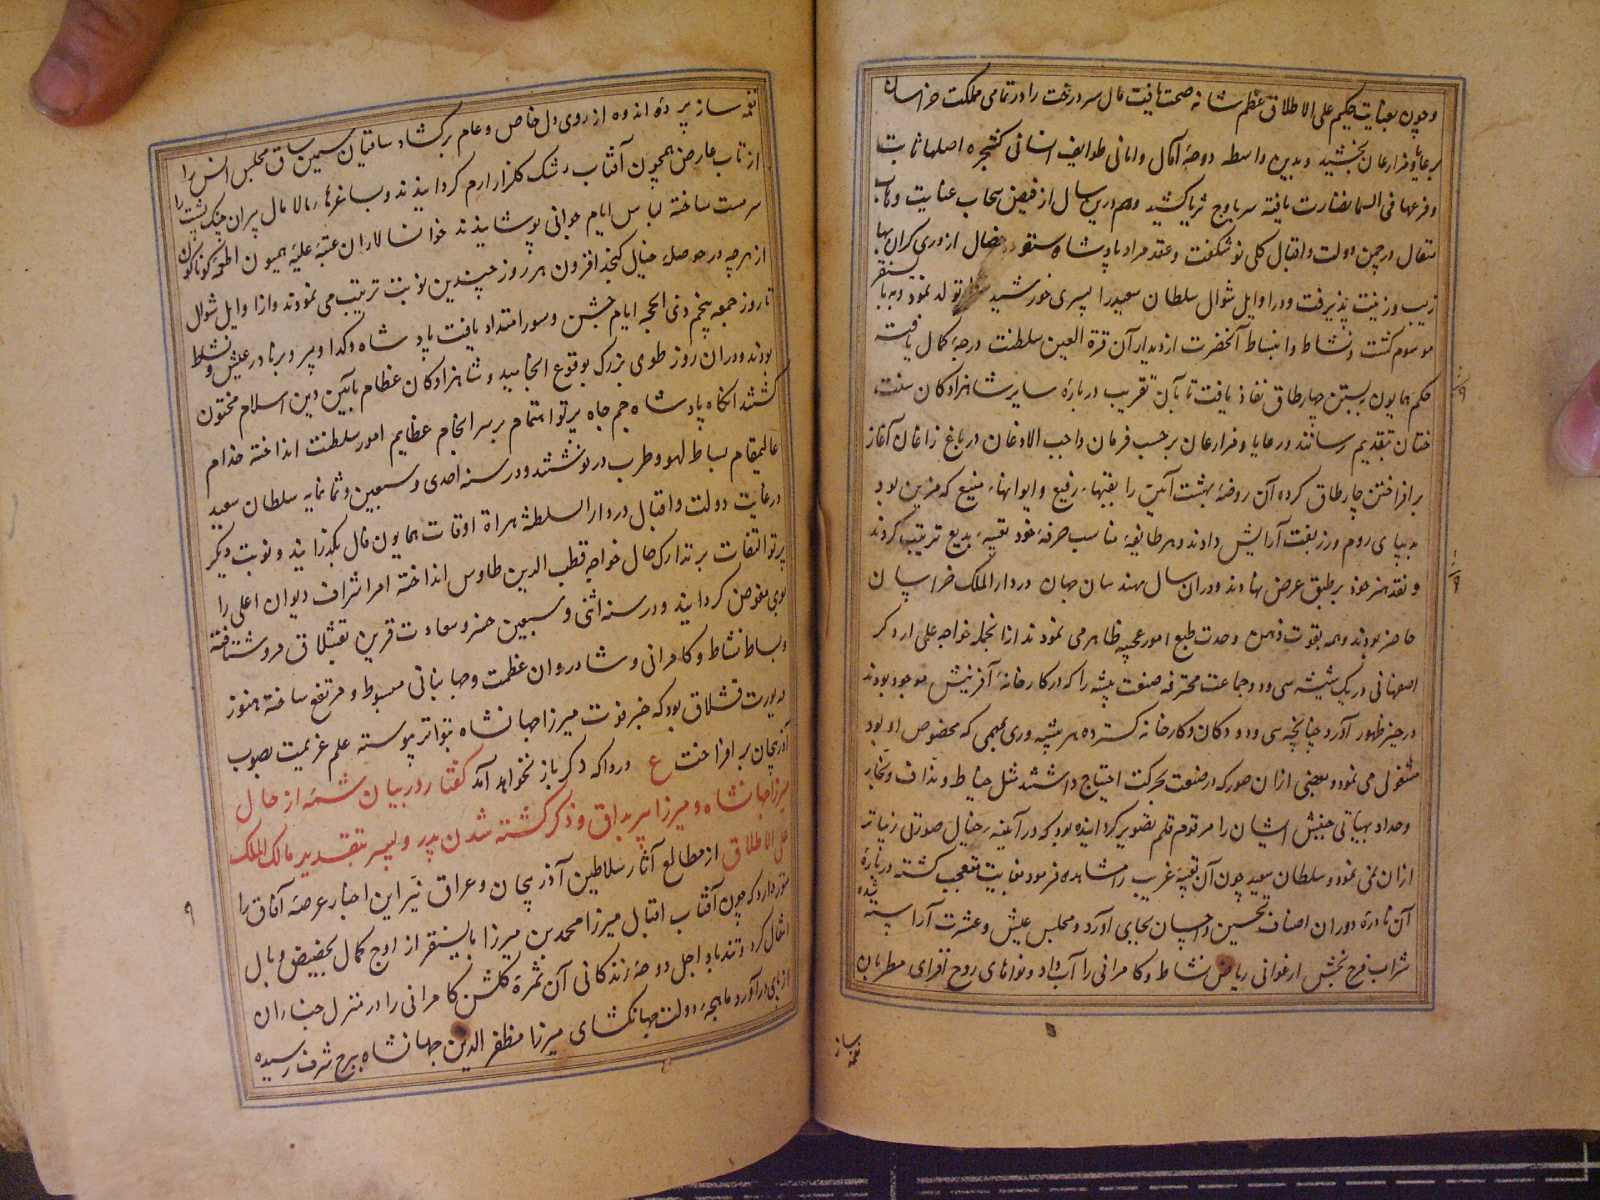 و چون بعنایت حکیم علی الاطلاق عظم شانه صحت یافت مال سر درخت را در تمامی مملکت خراسان
برعایا و مزارعان بخشید و بدین واسطه دوحهٔ آمال و امانی طوایف انسانی کشجره اصلها ثابت
و فرعها فی السما نضارت یافته سر باوج ثریا کشید و هم درین سال از فیض سحاب عنایت وهاب
متعال در چمن دولت و اقبال گلی نو شکفت و عقد مراد پادشاه ستوده خصال از دری گران بها
زیب و زینت پذیرفت و در اوایل شوال سلطان سعید را پسری خورشید تولد نمود و به بایسنقر
موسوم گشت و نشاط و انبساط آنحضرت از دیدار آن قرة العین سلطنت درجهٔ کمال یافت
حکم همایون ببستن چهار طاق نفاذ یافت تا بآن تقریب دربارهٔ سایر شاهزادگان سنت
ختان بتقدیم رسانند و رعایا و مزارعان برحسب فرمان واجب الاذعان در باغ زاغان آغاز
برافراختن چارطاق کرده آن روضهٔ بهشت آیین را بقبهاء رفیع و ایوانهاء منیع که مزین بود
بدیبای روم و زربفت آرایش دادند و هر طایفهٔ مناسب حرفهٔ خود تعبیهٔ بدیع ترتیب کردند
و نقد هنر خود بر طبق عرض نهادند و در آن سال مهندسان جهان در دار الملک خراسان
حاضر بودند و همه بقوت ذهن و حدت طبع امور عجیبه ظاهر می نمودند از آنجمله خواجه علی ارده گر
اصفهانی در یک شیشه سی و دو جماعت محترفه صنعت پیشه را که در کارخانهٔ آفرینش موجود بودند
در حیز ظهور آورد چنانچه سی و دو دکان و کارخانه گسترده هر پیشه وری بمهمی که مخصوص او بود
مشغولی می نمود و بعضی ازان صور که در صنعت بحرکت احتیاج داشتند مثل خیاط و نداف و نجار
و حداد بهیاتی جنبش ایشان را مرقوم قلم تصویر گردانیده بود که در آینهٔ خیال صورتی زیباتر
ازان نمی نمود و سلطان سعید چون آن تعبیهٔ غریب را مشاهده فرمود بغایت متعجب گشته دربارهٔ
آن نادرهٔ دوران اصناف تحسین و احسان بجای آورد و مجلس عیش و عشرت آراسته شده
شراب فرح بخش ارغوانی ریاض نشاط و کامرانی را آب داد و نواهای روح افزای مطربان
نغمه ساز
نغمه ساز پردهٔ اندوه از روی دل خاص و عام برگشاد ساقیان سیمین ساق مجلس انس را
از تاب عارض همچون آفتاب رشک گلزار ارم گردانیدند و بساغرهاء مالامال پیران چنگ پشت را
سرمست ساخته لباس ایام جوانی پوشانیدند خوانسالاران عتبهٔ علیهٔ همیون اطعمهٔ گوناگون
از هرچه در حوصلهٔ خیال گنجد افزون هر روز چندین نوبت ترتیب می نمودند و از اوایل شوال
تا روز جمعه پنجم ذی الحجه ایام جشن و سور امتداد یافت پادشاه و گدا و پیر و برنا در عیش و نشاط
بودند و در آن روز طوی بزرگ بوقوع انجامید و شاهزادگان عظام بآیین دین اسلام مختون
گشتند آنگاه پادشاه جم جاه پرتو اهتمام بر سرانجام عظایم امور سلطنت انداخته خدام
عالیمقام بساط لهو و طرب در نوشتند و در سنه احدی و سبعین و ثمانمایه سلطان سعید
در غایت دولت و اقبال در دار السلطنهٔ هراة اوقات همایون فال بگذرانید و نوبت دیگر
پرتو التفات بر تدارک حال خواجه قطب الدین طاوس انداخته امر اشراف دیوان اعلی را
بوی مفوض گردانید و در سنه اثنی و سبعین خسرو سعادت قرین بقشلاق مرو شتافته
و بساط نشاط و کامرانی و شادروان عظمت و جهانبانی مبسوط و مرتفع ساخته هنوز
در یورت قشلاق بود که خبر فوت میرزا جهانشاه بتواتر پیوسته علم عزیمت بصوب
آذربیجان برافراخت ع دردا که دگر باز نخواهد آمد گفتار در بیان شمهٔ از حال
میرزا جهانشاه و میرزا پیر بداق و ذکر کشته شدن پدر و پسر بتقدیر مالک الملک
علی الاطلاق از مطالع آثار سلاطین آذربیجان و عراق نیّر این اخبار عرصهٔ آفاق را
منور دارد که چون آفتاب اقبال میرزا محمد بن میرزا بایسنقر از اوج کمال بحضیض وبال
انتقال کرد و تندباد اجل دوحهٔ زندگانی آن ثمرهٔ گلشن کامرانی را در منزل چناران
از پای درآورد ماهچهٔ دولت جهانگشای میرزا مظفر الدین جهانشاه ببرج شرف رسیده